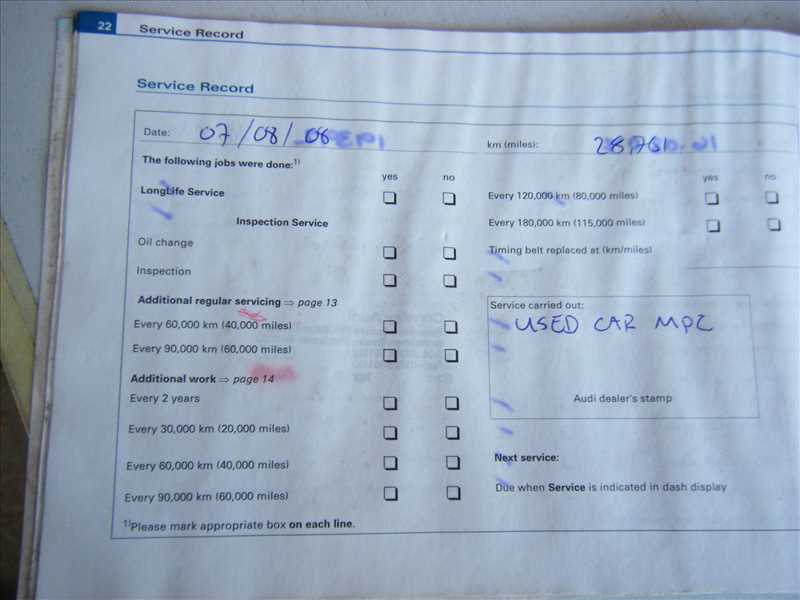 22 Service Record
Service Record
Date: 07/08/08
km (miles):
The following jobs were done:1)
yes no
LongLife Service
Inspection Service
Oil change
Inspection
Additional regular servicing ⇒ page 13
Every 60,000 km (40,000 miles)
Every 90,000 km (60,000 miles)
Additional work ⇒ page 14
Every 2 years
Every 30,000 km (20,000 miles)
Every 60,000 km (40,000 miles)
Every 90,000 km (60,000 miles)
1)Please mark appropriate box on each line.
yes no
Every 120,000 km (80,000 miles)
Every 180,000 km (115,000 miles)
Timing belt replaced at (km/miles)
Service carried out:
USED CAR MPI
Audi dealer's stamp
Next service:
Due when Service is indicated in dash display